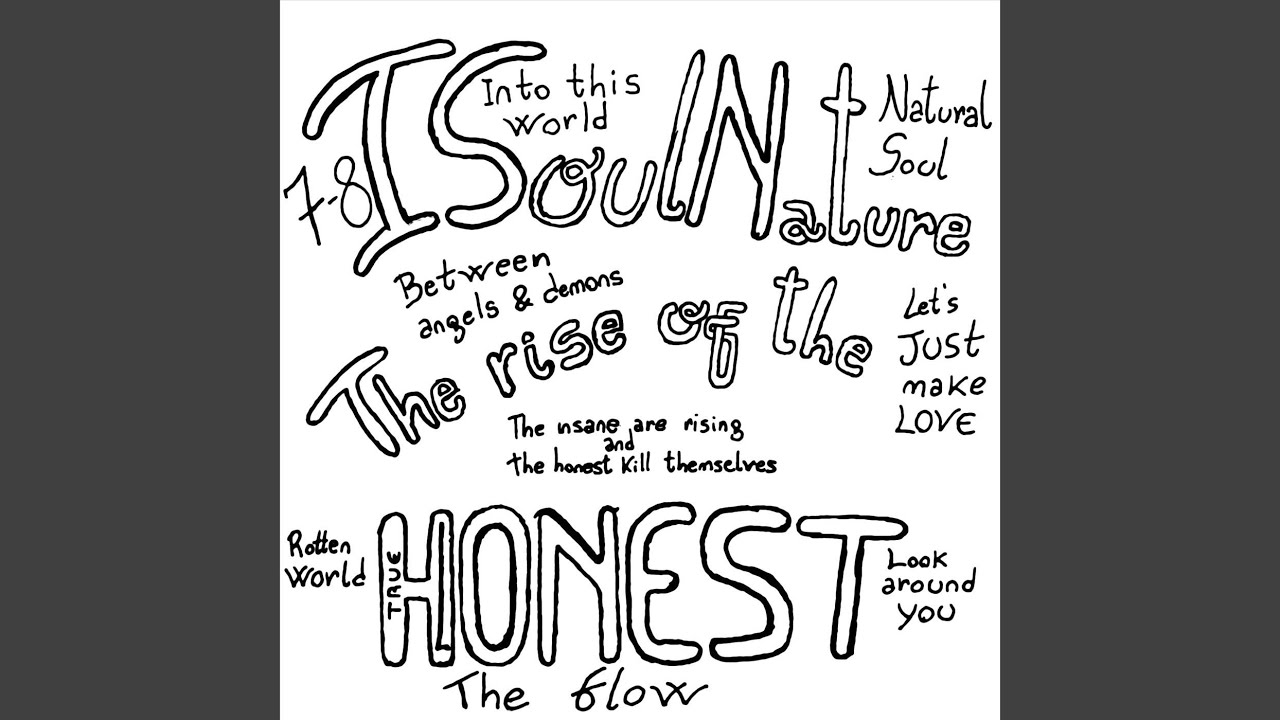 I Soul Nature
Into this
world
Natural
Soul
7-8
Between
angels & demons
The rise of the
Let's
JUST
make
LOVE
The insane are rising
and
the honest kill themselves
HONEST
TRUE
Rotten
World
Look
around
you
The flow